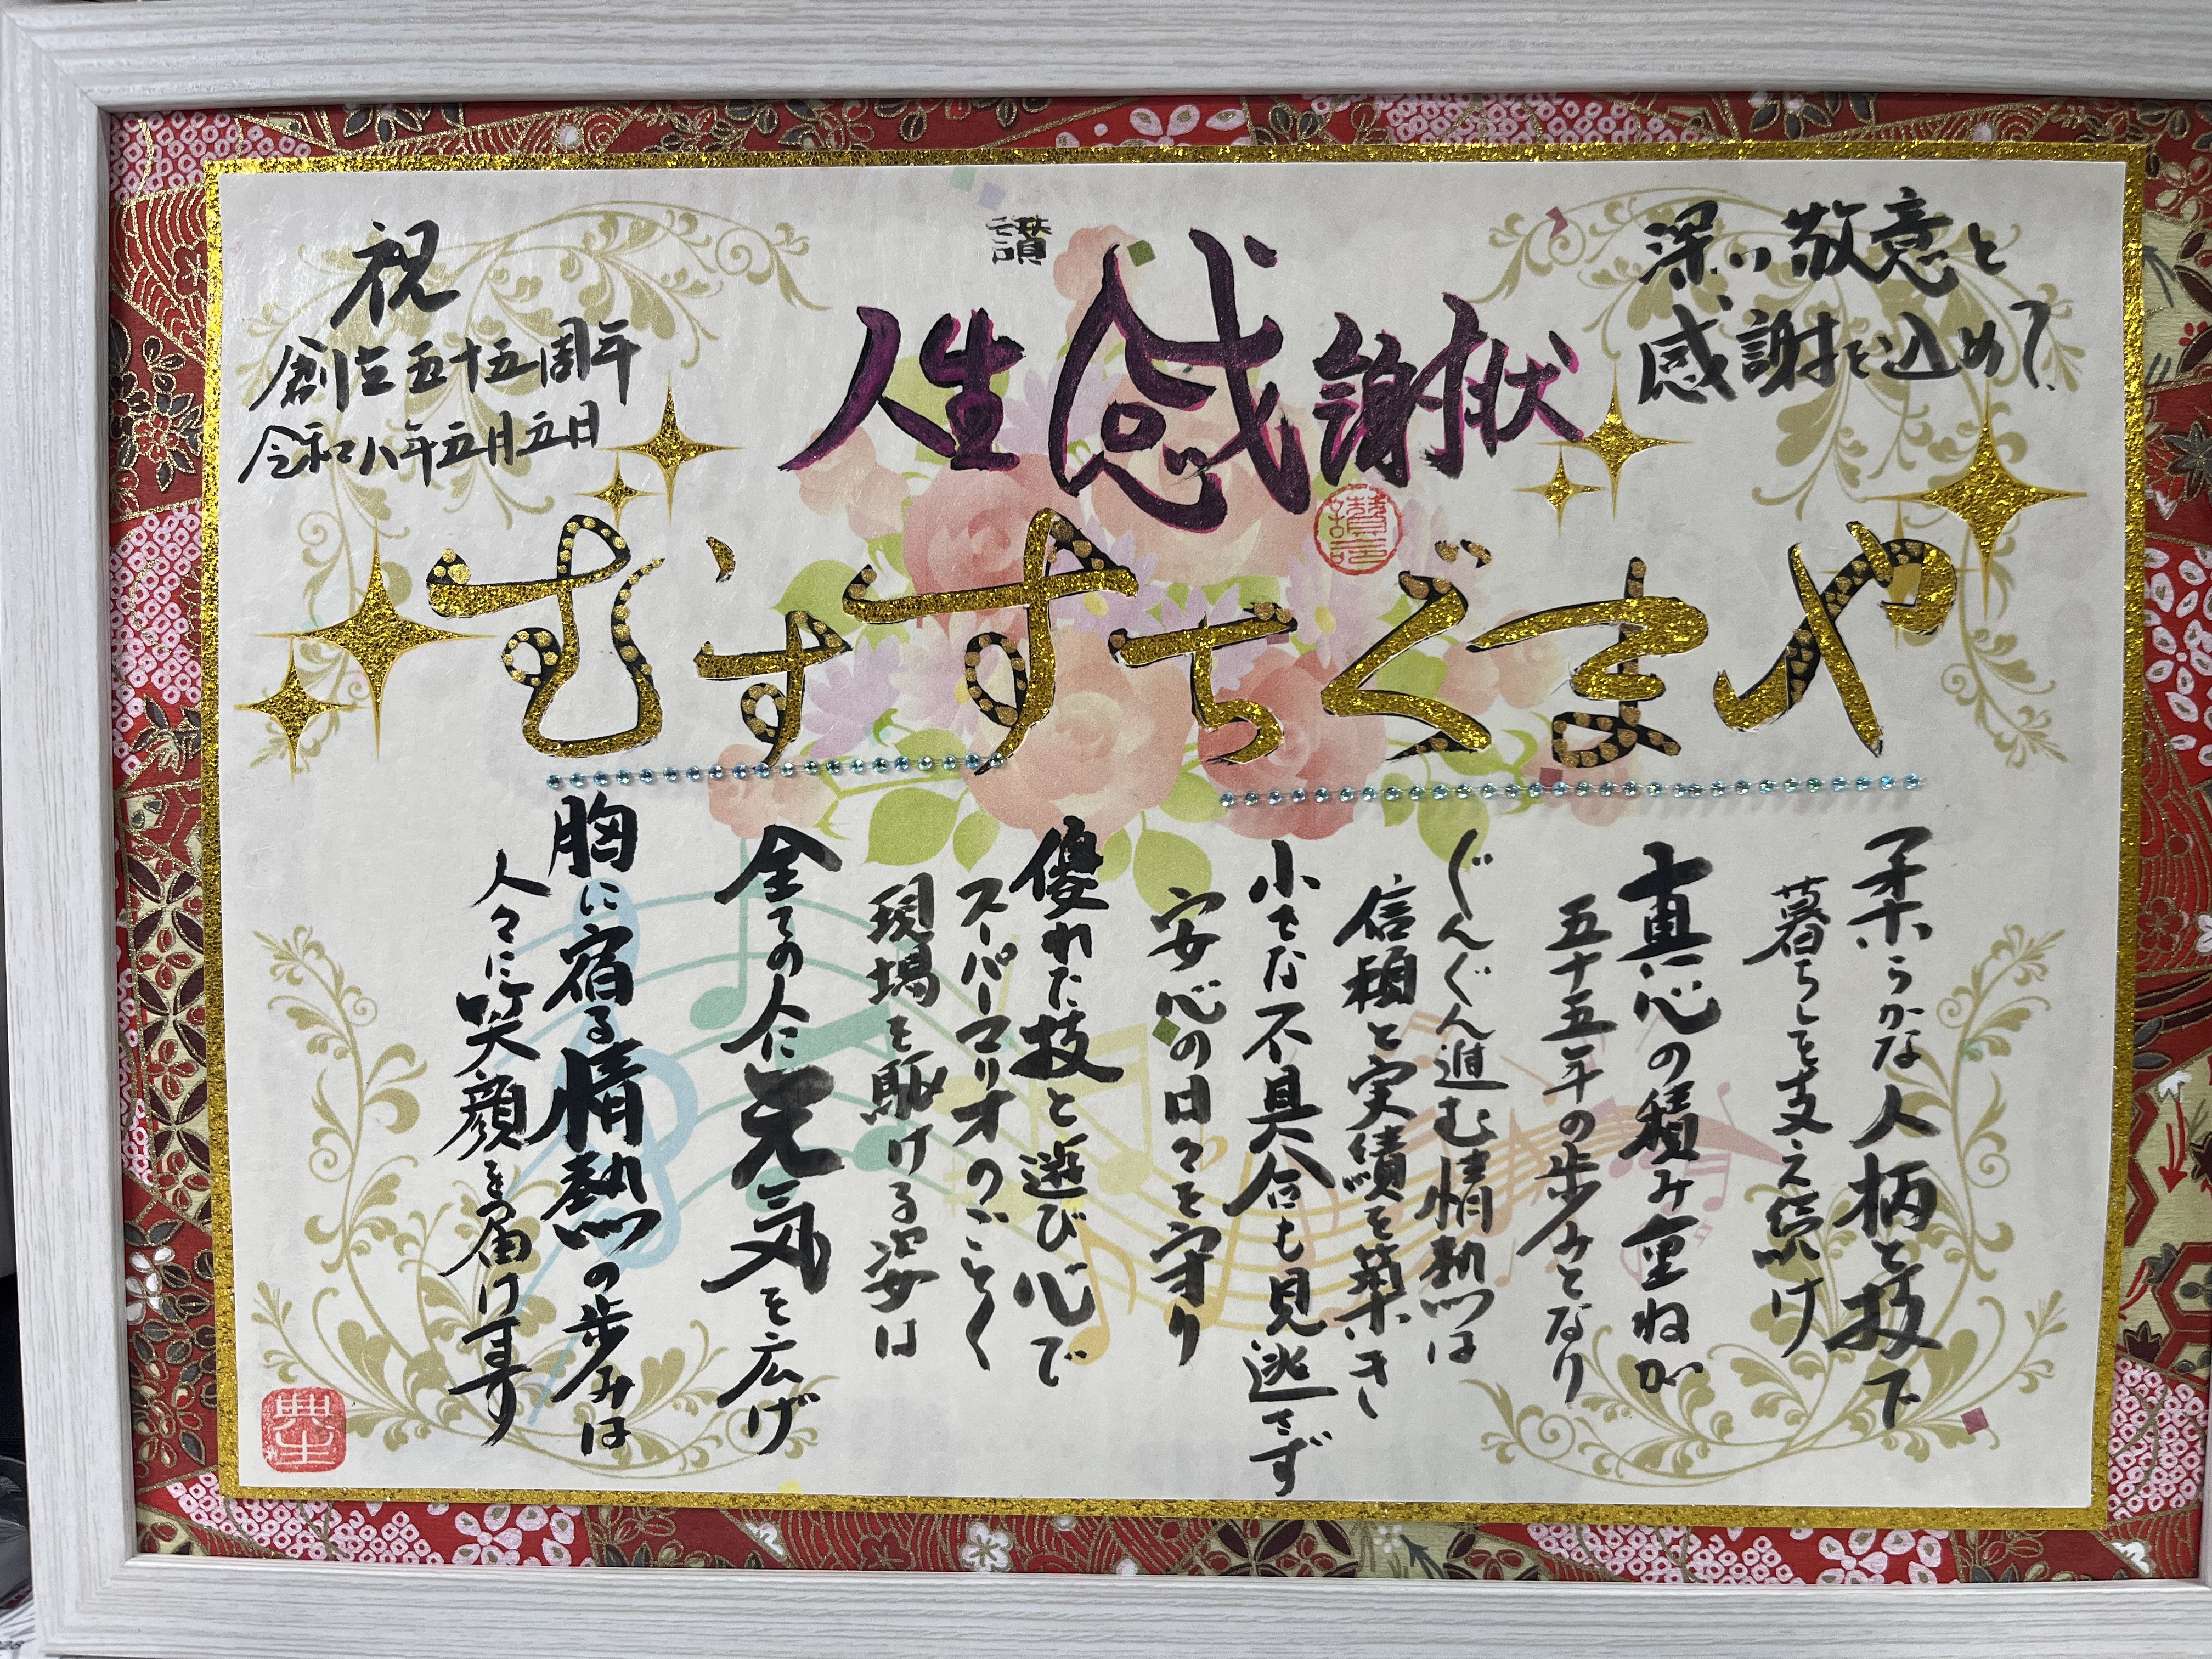 深い敬意と
感謝を込めて
讃
人生感謝状
祝
創立五十五周年
令和八年五月五日
むずすちぐまや
柔らかな人柄と技で
暮らしを支え続け
真心の積み重ねが
五十五年の歩みとなり
ぐんぐん進む情熱は
信頼と実績を築き
小さな不具合も見逃さず
安心の日々を守り
優れた技と遊び心で
スーパーマリオのごとく
現場を駆ける姿は
全ての人に元気を広げ
胸に宿る情熱の歩みは
人々に笑顔を届けます
典生